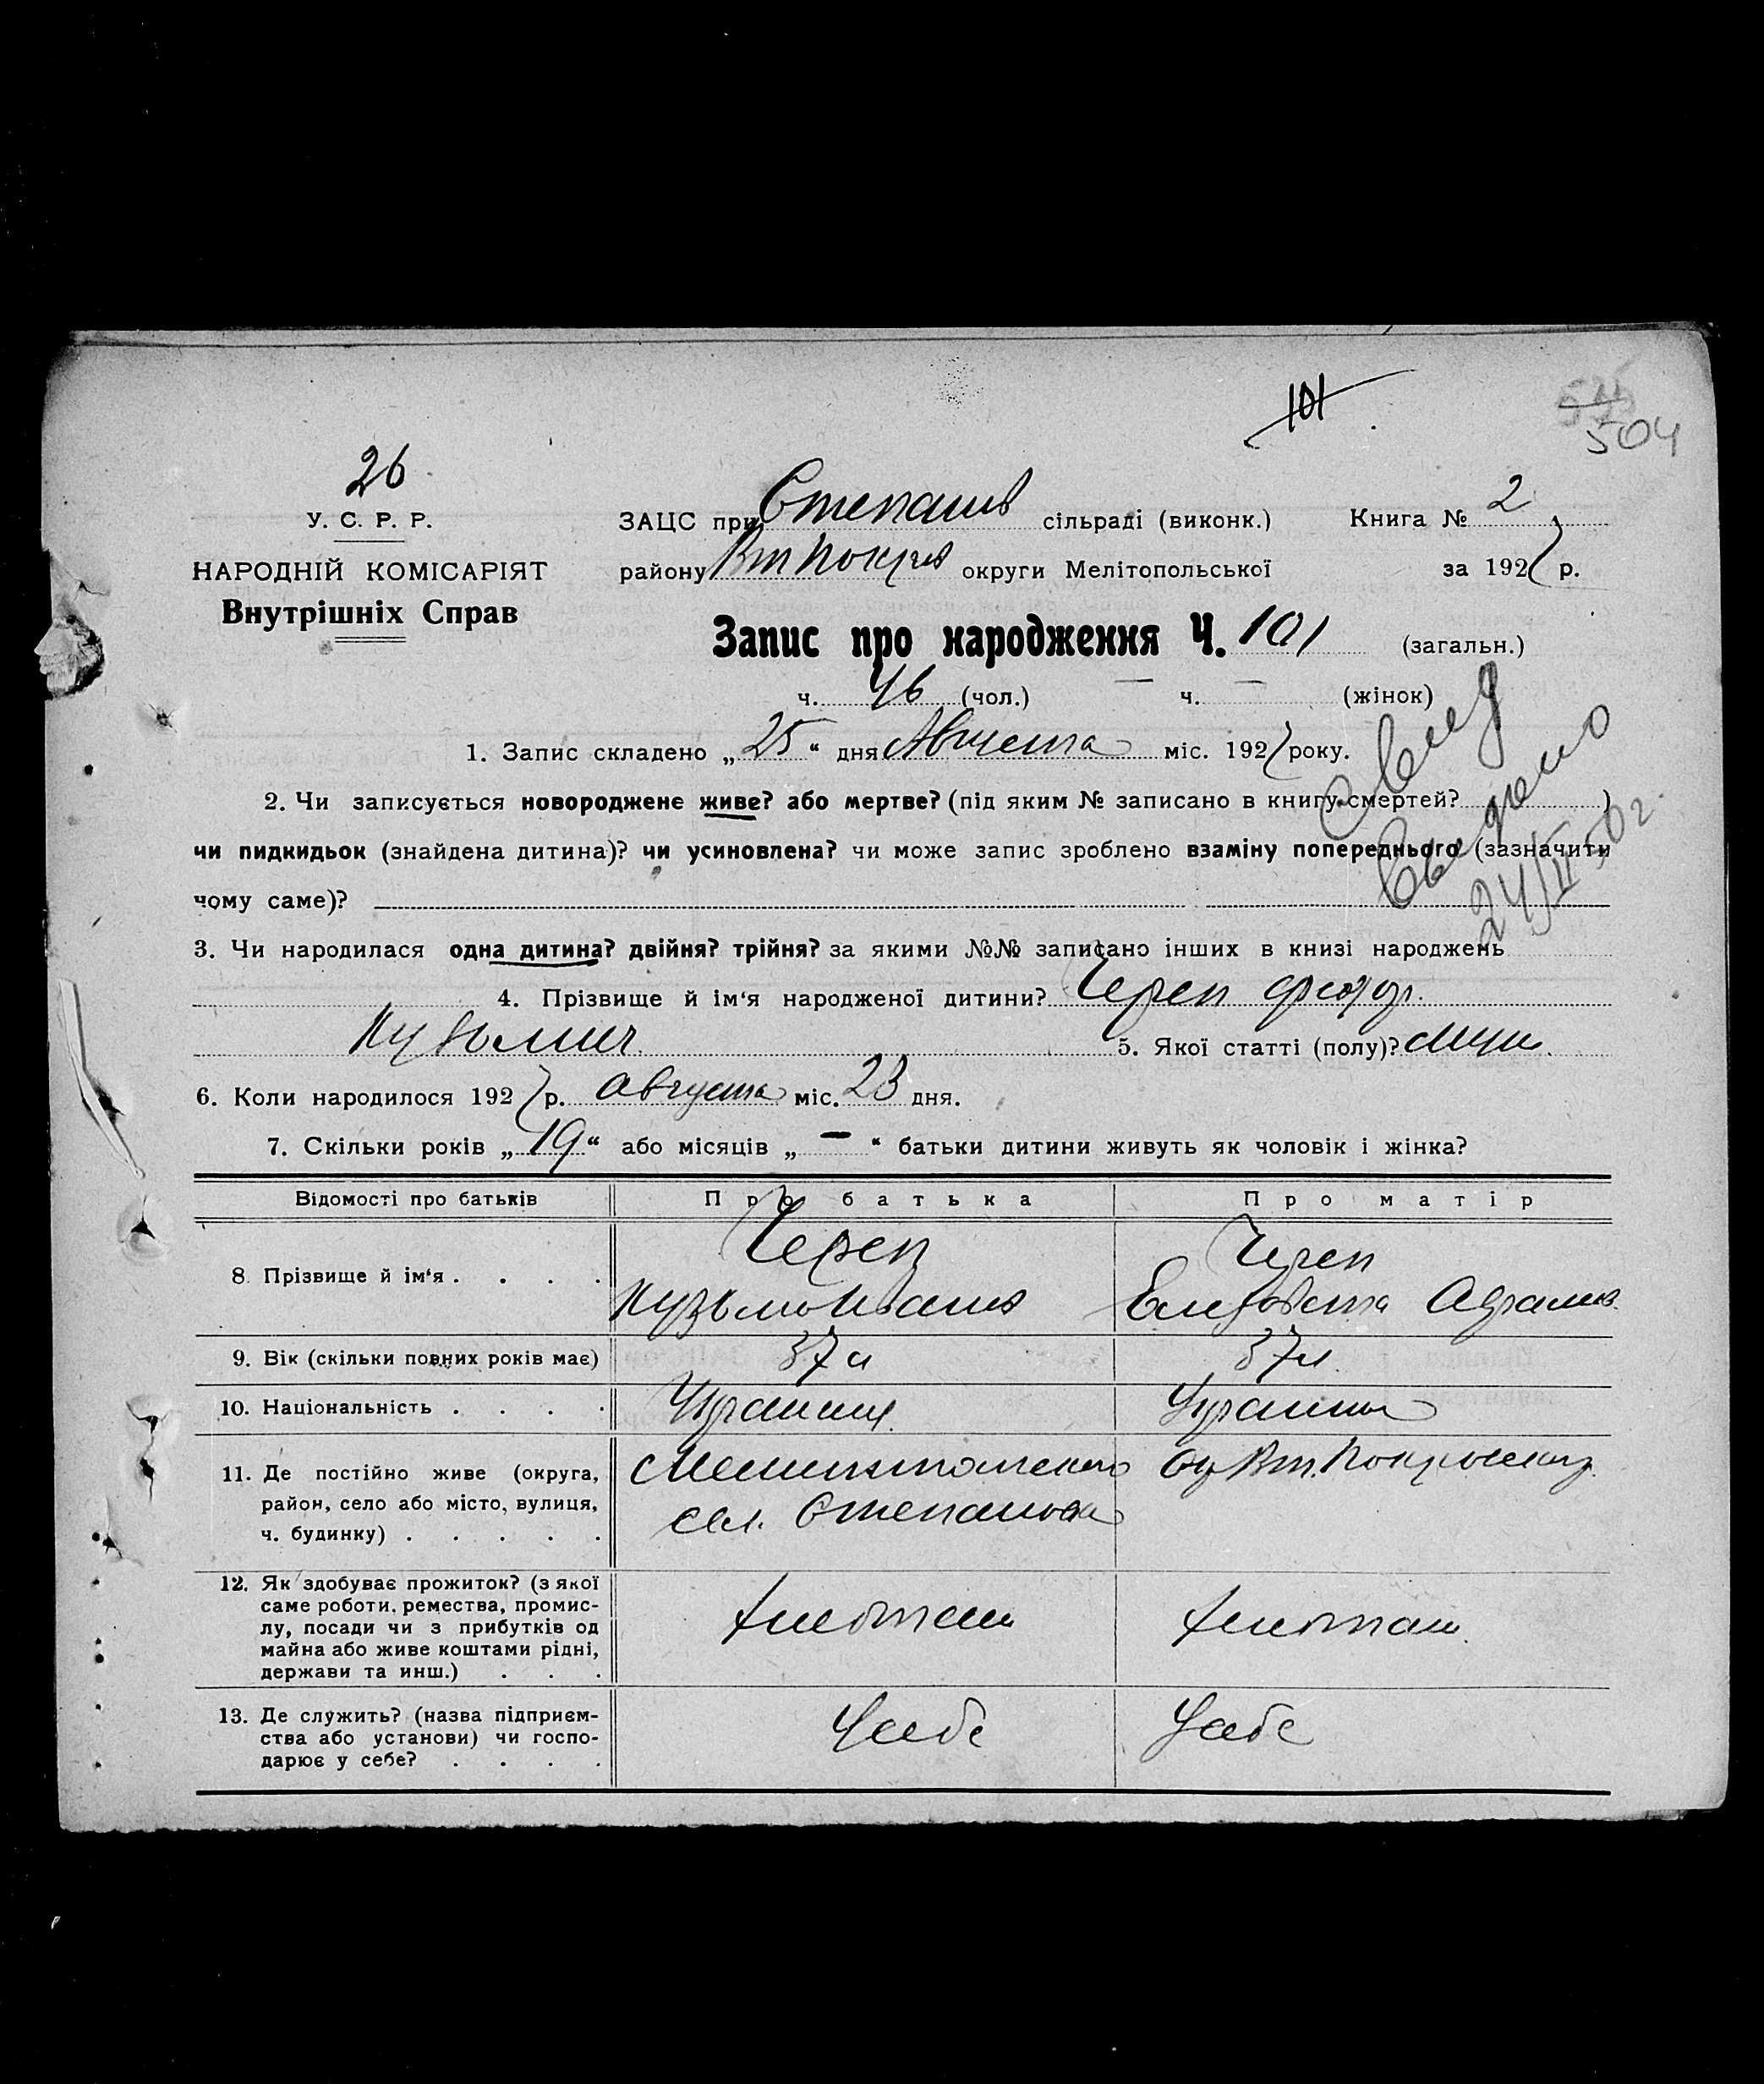 101
504
26
У. С. Р. Р.
НАРОДНІЙ КОМІСАРІЯТ
Внутрішніх Справ
ЗАЦС при Степанів сільраді (виконк.) Книга № 2
району Вт Покров округи Мелітопольської за 1927 р.
Запис про народження Ч. 101 (загальн.)
ч. 46 (чол.) — ч. — (жінок)
1. Запис складено „25“ дня Августа міс. 1927 року.
2. Чи записується новороджене живе? або мертве? (під яким № записано в книгу смертей? )
чи пидкидьок (знайдена дитина)? чи усиновлена? чи може запис зроблено взаміну попереднього (зазначити
чому саме)?
24/II 50 г.
3. Чи народилася одна дитина? двійня? трійня? за якими №№ записано інших в книзі народжень
4. Прізвище й ім'я народженої дитини? Череп Федор
Кузьмич 5. Якої статті (полу)? муж.
6. Коли народилося 1927 р. августа міс. 23 дня.
7. Скільки років „19“ або місяців „—“ батьки дитини живуть як чоловік і жінка?
Відомості про батьків Про батька Про матір
8. Прізвище й ім'я . . . . Череп Череп
Кузьма Иванов Елизавета
9. Вік (скільки повних років має) 37 л 37 л.
10. Національність . . . . Украинец Украинка
11. Де постійно живе (округа, Мелитопольского Вт. Покровский
район, село або місто, вулиця, сел. Степановка
ч. будинку) . . . . .
12. Як здобуває прожиток? (з якої
саме роботи, ремества, промис-
лу, посади чи з прибутків од хлебопаш хлебопаш.
майна або живе коштами рідні,
держави та инш.) . . .
13. Де служить? (назва підприєм-
ства або установи) чи госпо- У себе У себе
дарює у себе? . . . .